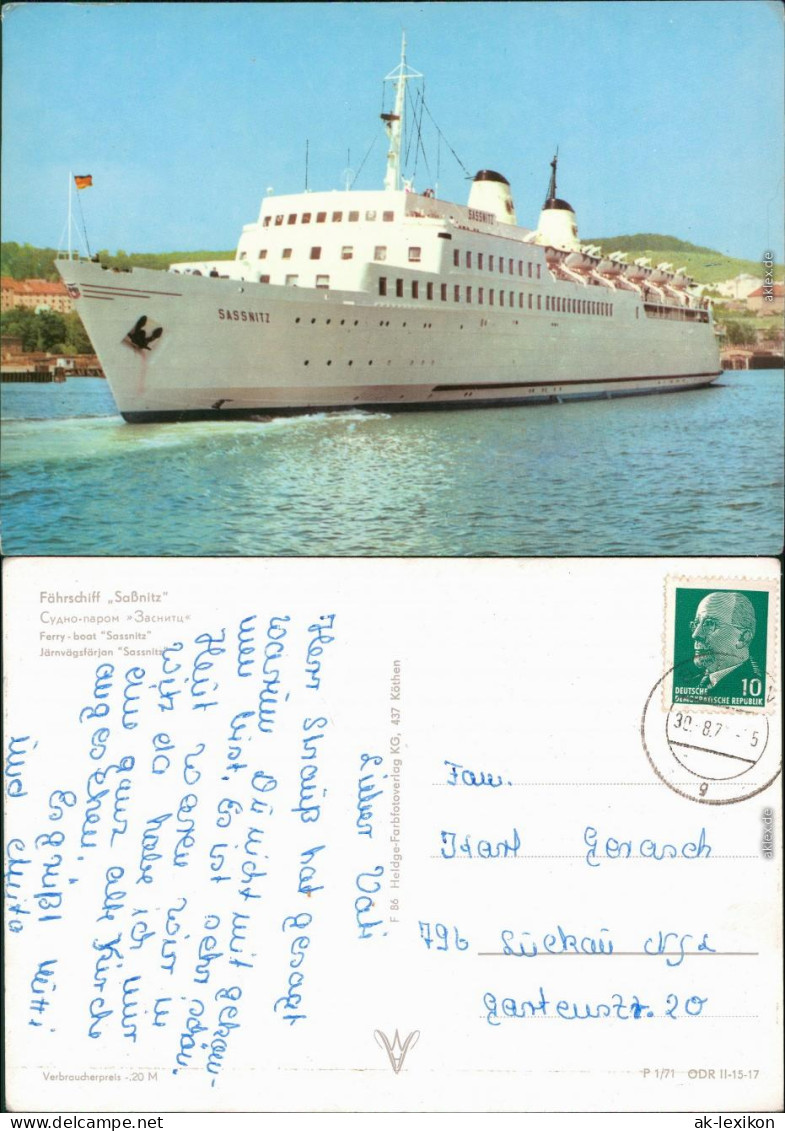 SASSNITZ
SASSNITZ
Fährschiff „Saßnitz"
Судно-паром »Засниц«
Ferry-boat "Sassnitz"
Järnvägsfärjan "Sassnitz"
Lieber Vati
Herr Strauß hat gesagt
warum Du nicht mit gekom-
men bist. Es ist sehr schön.
Heut waren wir in
witz da habe ich mir
eine ganz alte Kirche
angeschaut.
Es grüßt Mutti
und
F 86 Heldge-Farbfotoverlag KG, 437 Köthen
DEUTSCHE
DEMOKRATISCHE REPUBLIK
10
30.-8.7
g
Fam.
Karl Gerasch
796 Luckau N/L
Gartenstr. 20
Verbraucherpreis -.20 M
P 1/71 ODR II-15-17
aklex.de
aklex.de
aklex.de
ak-lexikon